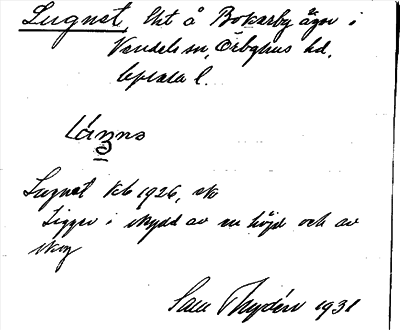 Lugnet, Lht å Bokarby ägor i
Vendels sn, Örbyhus hd,
Uppsala l.
Lugnet kb 1926, sk
Ligger i skydd av en höjd och av
skog
Sam Thydén 1931